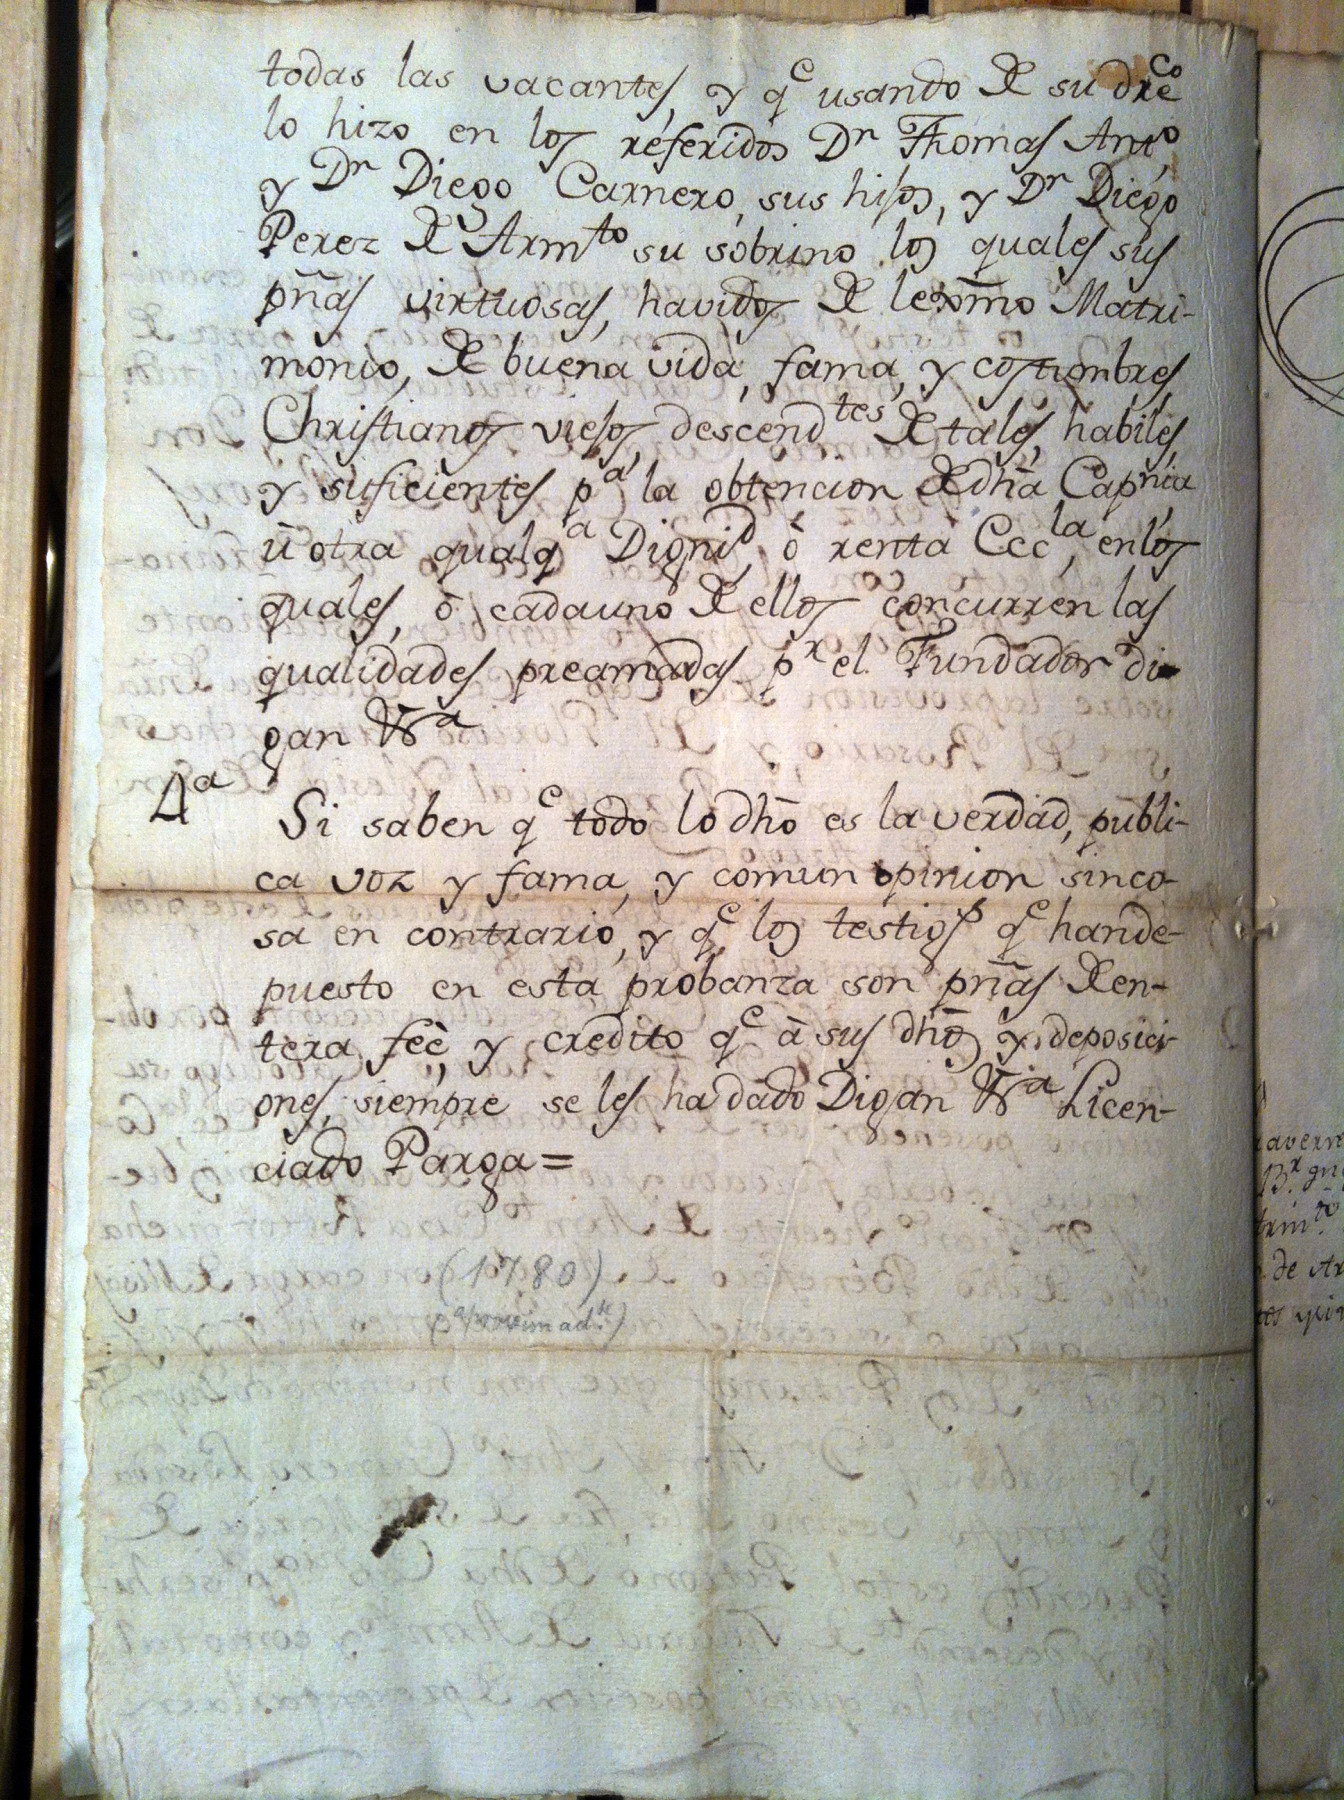 todas las vacantes, y q.e usando de su dre.co
lo hizo en los referidos Dn Thomas Anto
y Dn Diego Carnero, sus hijos, y Dn Diego
Perez de Armto su sobrino los quales sus
pñas virtuosas, havidos de lexmo Matri-
monio, de buena vida, fama, y costumbres,
Christianos viejos, descendtes de tales, habiles,
y suficientes pa la obtencion de dha Capnia
ù otra qualqa Dignid, ò renta Eccla, en los
quales, ò cadauno de ellos concurren las
qualidades preamadas pr el Fundador di-
gan Wa
4a Si saben qe todo lo dho es la verdad, publi-
ca voz y fama, y comun opinion sinco-
sa en contrario, y qe los testigos qe hande-
puesto en esta probanza son pñas de en-
tera feè, y credito qe à sus dhos y deposici-
ones, siempre se les ha dado Digan Wa Licen-
ciado Parga =
(1780)
(aproximadte)